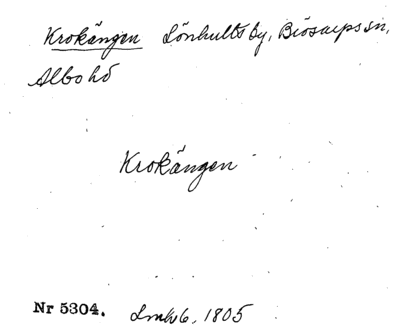 Krokängen Lönhults by, Biosarps sn,
Albo hd
Krokängen
Nr 5304. Lmh 6, 1805